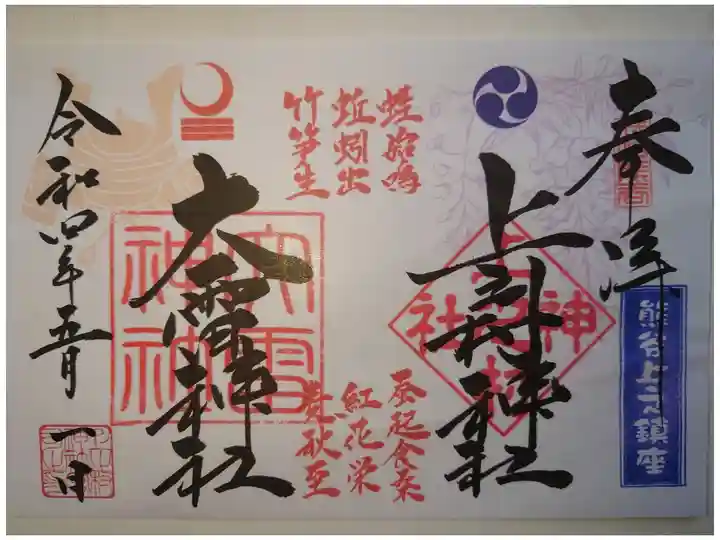 奉拝
熊谷上之鎮座
上之村神社
蛙始鳴
蚯蚓出
竹笋生
蚕起食桑
紅花栄
麦秋至
大雷神社
令和四年五月一日